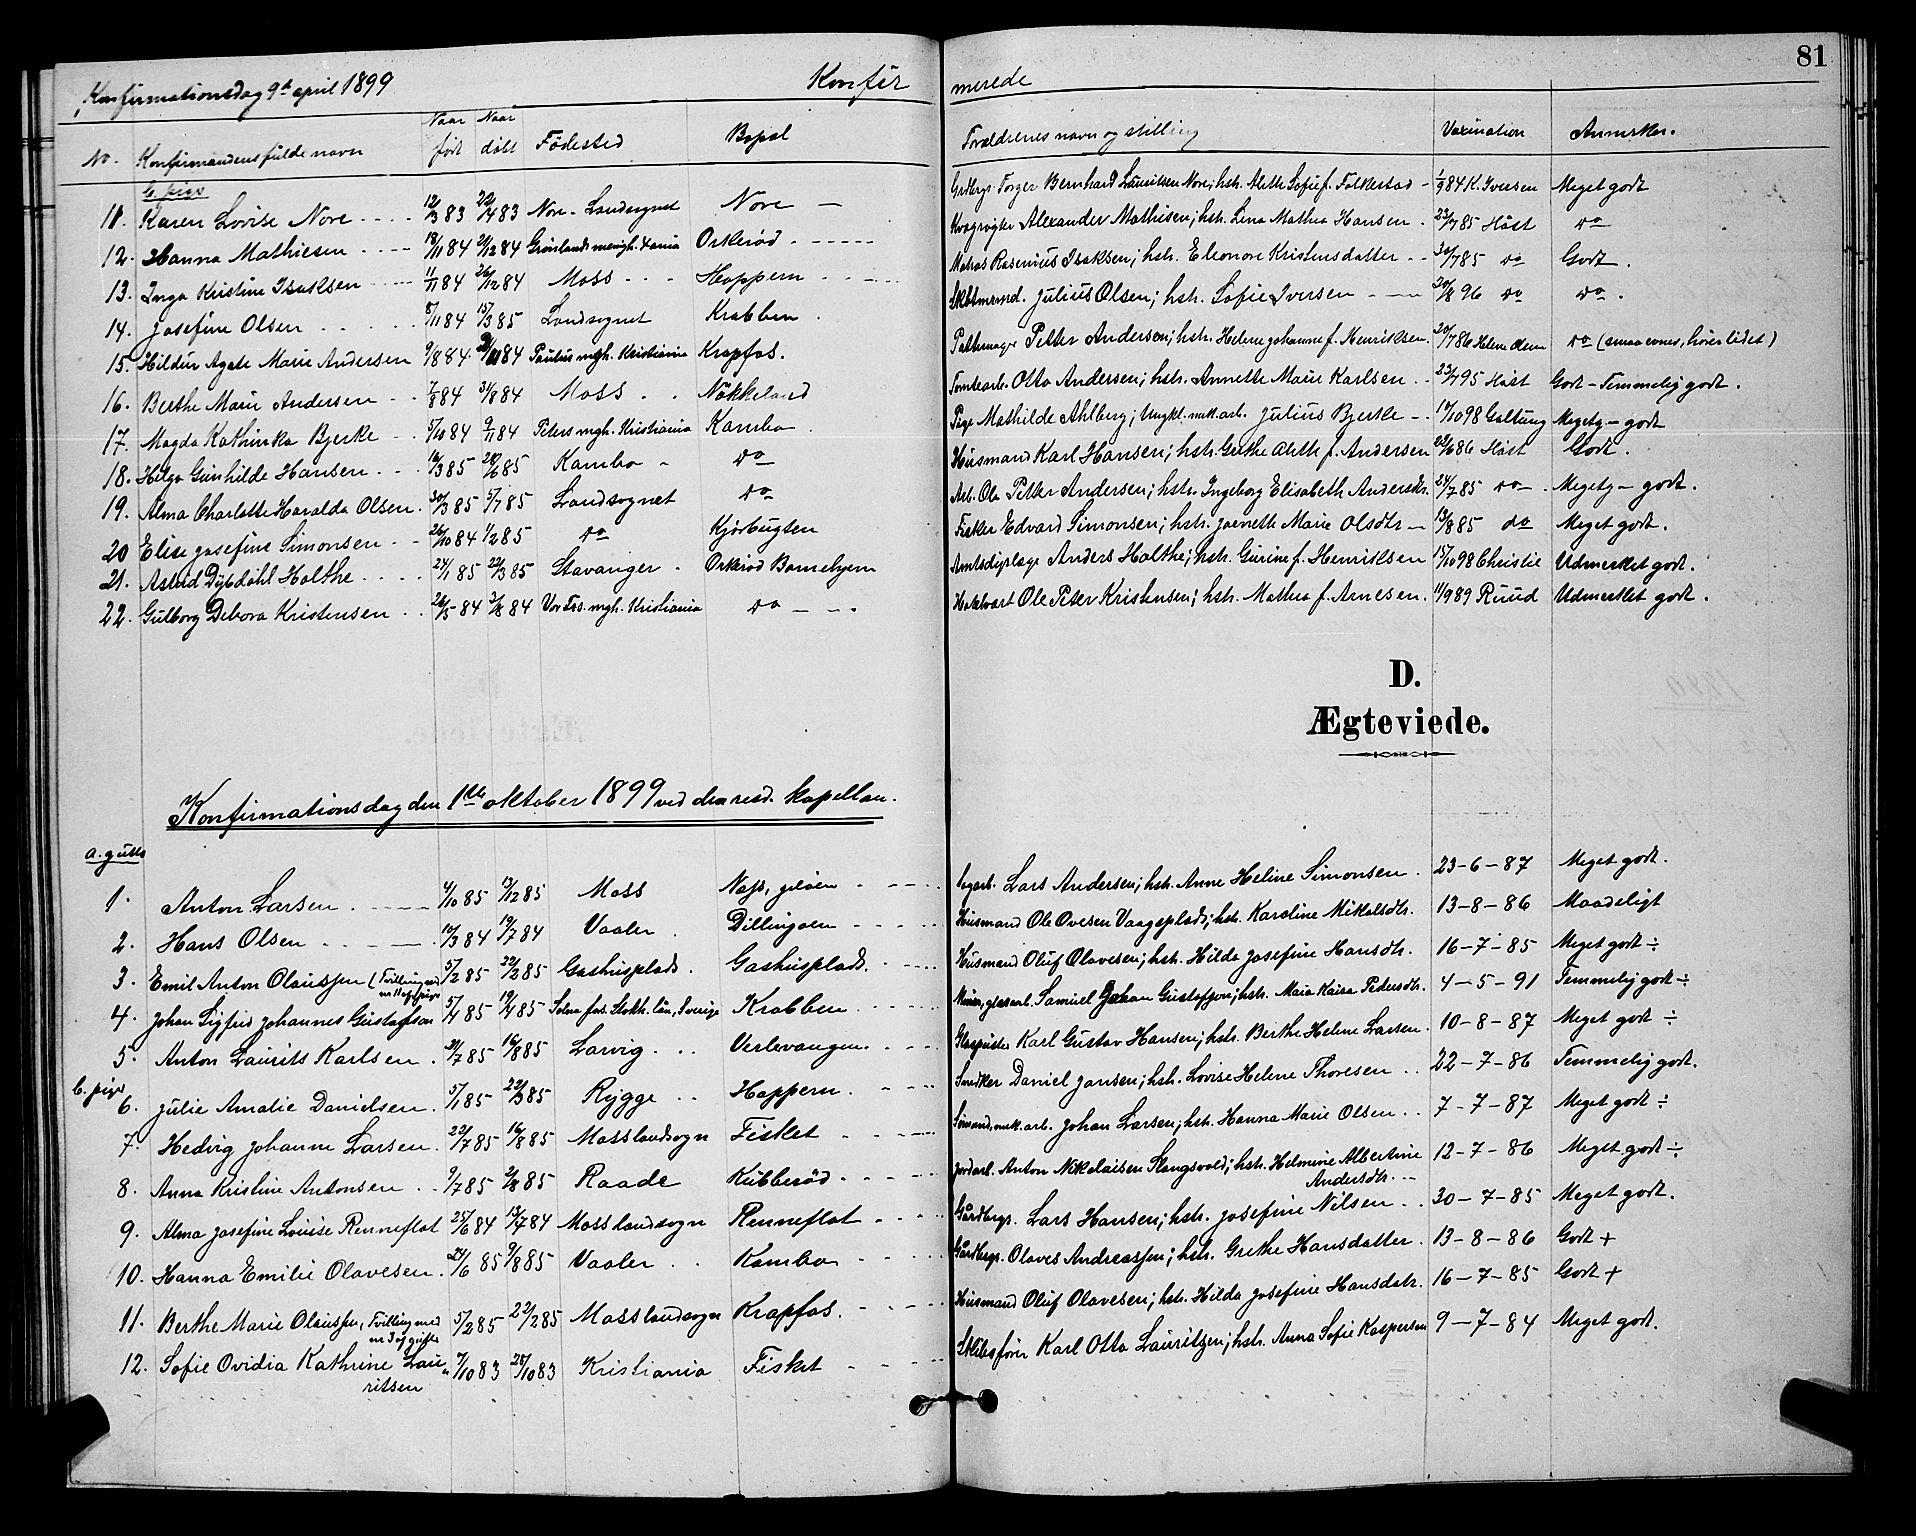 81
Konfirmationsdag 9d april 1899 Konfir merede
No. Konfirmandens fulde navn Naar født Naar døbt Fødested Bopæl Forældrenes navn og stilling Vaxination Anmerkn.
b. piger
11. Karen Lovise Nore 12/3 83 22/4 83 Nore - Landsognet Nore Grdbrgr Torger Bernhard Lauritsen Nore; hstr. Alette Sofie f. Folkestad 1/9 84 K. Iversen Meget godt
12. Hanna Mathiesen 18/11 84 21/12 84 Grønlands menigh. Xania Orkerød Alexander Mathisen; hstr. Lina Mathea Hansen 23/7 85 Høst do
13. Inga Kristine Isaksen 11/11 84 26/12 84 Moss Hoppern Matros Rasmius Isaksen; hstr. Eleonore Kristensdatter 30/7 85 do Godt.
14. Josefine Olsen 8/11 84 15/3 85 Landsognet Krabben Julius Olsen; hstr. Sofie Iversen 20/8 96 do do.
15. Hildur Agate Marie Andersen 9/8 84 84 Paulus mgh. Kristiania Krapfos. Petter Andersen; hstr. Helene Johanne f. Henriksen. 20/7 86 Helene Olsen do (smaa evner, hører lidet)
16. Berthe Marie Andersen 7/8 84 31/8 84 Moss Nøkkeland Tomtearb. Otto Andersen; hstr. Annette Marie Karlsen 23/7 95 Høst Godt - Temmelig godt.
17. Magda Kathinka Bjerke 5/10 84 9/11 84 Peters mgh. Kristiania Kambo Pige Mathilde Ahlberg; Ungkl. mek. arb. Julius Bjerke 17/10 98 Galtung Megetg - godt
18. Helga Gunhilde Hansen 16/3 85 28/6 85 Kambo do Husmand Karl Hansen; hstr. Grethe Alette f. Andersen 22/6 86 Høst Godt.
19. Alma Charlotte Haralda Olsen. 30/3 85 5/7 85 Landsognet do Arb. Ole Petter Andersen; hstr. Ingeborg Elisabeth Andersdr. 24/7 85 do Megetg - godt.
20 Elise Josefine Simonsen 26/10 84 1/2 85 do Kjørbugten Fisker Edvard Simonsen; hstr. Jaenette Marie Olsdtr 13/8 85 do Meget godt.
21. Astrid Dybdahl Holthe 24/1 85 22/3 85 Stavanger Orkerød Barnehjem Anders Holthe; hstr. Gurine f. Henriksen 15/10 98 Christie Udmerket godt.
22. Gulborg Debora Kristensen 26/5 84 3/8 84 Vor Frs. mgh. Kristiania do Ole Peter Kristensen; hstr. Mathea f. Arnesen. 11/9 89 Ruud Udmerket godt.
D.
Ægteviede.
Konfirmationsdag den 1ste oktober 1899 ved den resd. kapellan.
a. gutter
1. Anton Larsen 4/10 85 13/12 85 Moss Nojs, jeløen Lars Andersen; hstr. Anne Heline Simonsen 23-6-87 Meget godt.
2. Hans Olsen 10/3 84 19/7 84 Vaaler Dillingøen Husmand Ole Ovesen Vaagsplads; hstr. Karoline Mikalsdtr. 13-8-86 Maadeligt
3. Emil Anton Olaussen (Tvilling med nr. 11 af piger 5/2 85 22/2 85 Gashusplads. Gashusplads. Husmand Oluf Olavesen; hstr. Hilda Josefine Hansdtr. 16-7-85 Meget godt ÷
4. Johan Sigfrid Johannes Gustafsson 5/4 85 19/4 85 Solna fors. Stokh. län, Sverige Krabben Samuel Johan Gustafsson; hstr. Maia Kaisa Pedersdtr. 4-5-91 Temmelig godt ÷
5. Anton Laurits Karlsen 31/7 85 16/8 85 Larvig. Verlevangen. Glaspuster Karl Gustav Hansen; hstr. Berthe Helene Larsen. 10-8-87 Meget godt ÷
b. piger
6. Julie Amalie Danielsen. 5/1 85 22/3 85 Rygge Hoppern. Snedker Daniel Jansen; hstr. Lovise Helene Thoresen 22-7-86 Temmelig godt.
7. Hedvig Johanne Larsen. 22/7 85 16/8 85 Moss landsogn Fisket Sømand, mek. arb. Johan Larsen; hstr. Hanna Marie Olsen 7-7-87 Meget godt ÷
8. Anna Kristine Antonsen 9/7 85 2/8 85 Raade Kubberød Jordarb. Anton Nikolaisen Slangsvold; hstr. Helmine Albertine Andersdtr. 12-7-86 Meget godt ÷
9. Alma Josefine Louise Renneflot 25/6 84 13/7 84 Moss landsogn Renneflot Gårdbrgr. Lars Hansen; hstr. Josefine Nilsen 30-7-85 Meget godt.
10. Hanna Emilie Olavesen. 24/6 85 9/8 85 Vaaler Kambo Gårdbrgr. Olaves Andreassen; hstr. Grethe Hansdatter 13-8-86 Godt +
11. Berthe Marie Olaussen, Tvilling med nr 3 af gutter 5/2 85 22/2 85 Moss landsogn Krapfos. Husmand Oluf Olavesen; hstr. Hilda Josefine Hansdatr. 16-7-85 Godt +
12. Sofie Ovidia Kathrine Lauritsen 7/10 83 28/10 83 Kristiania Fisket Skibsfører Karl Otto Lauritzen; hstr. Anna Sofie Kaspersen 9-7-84 Meget godt.